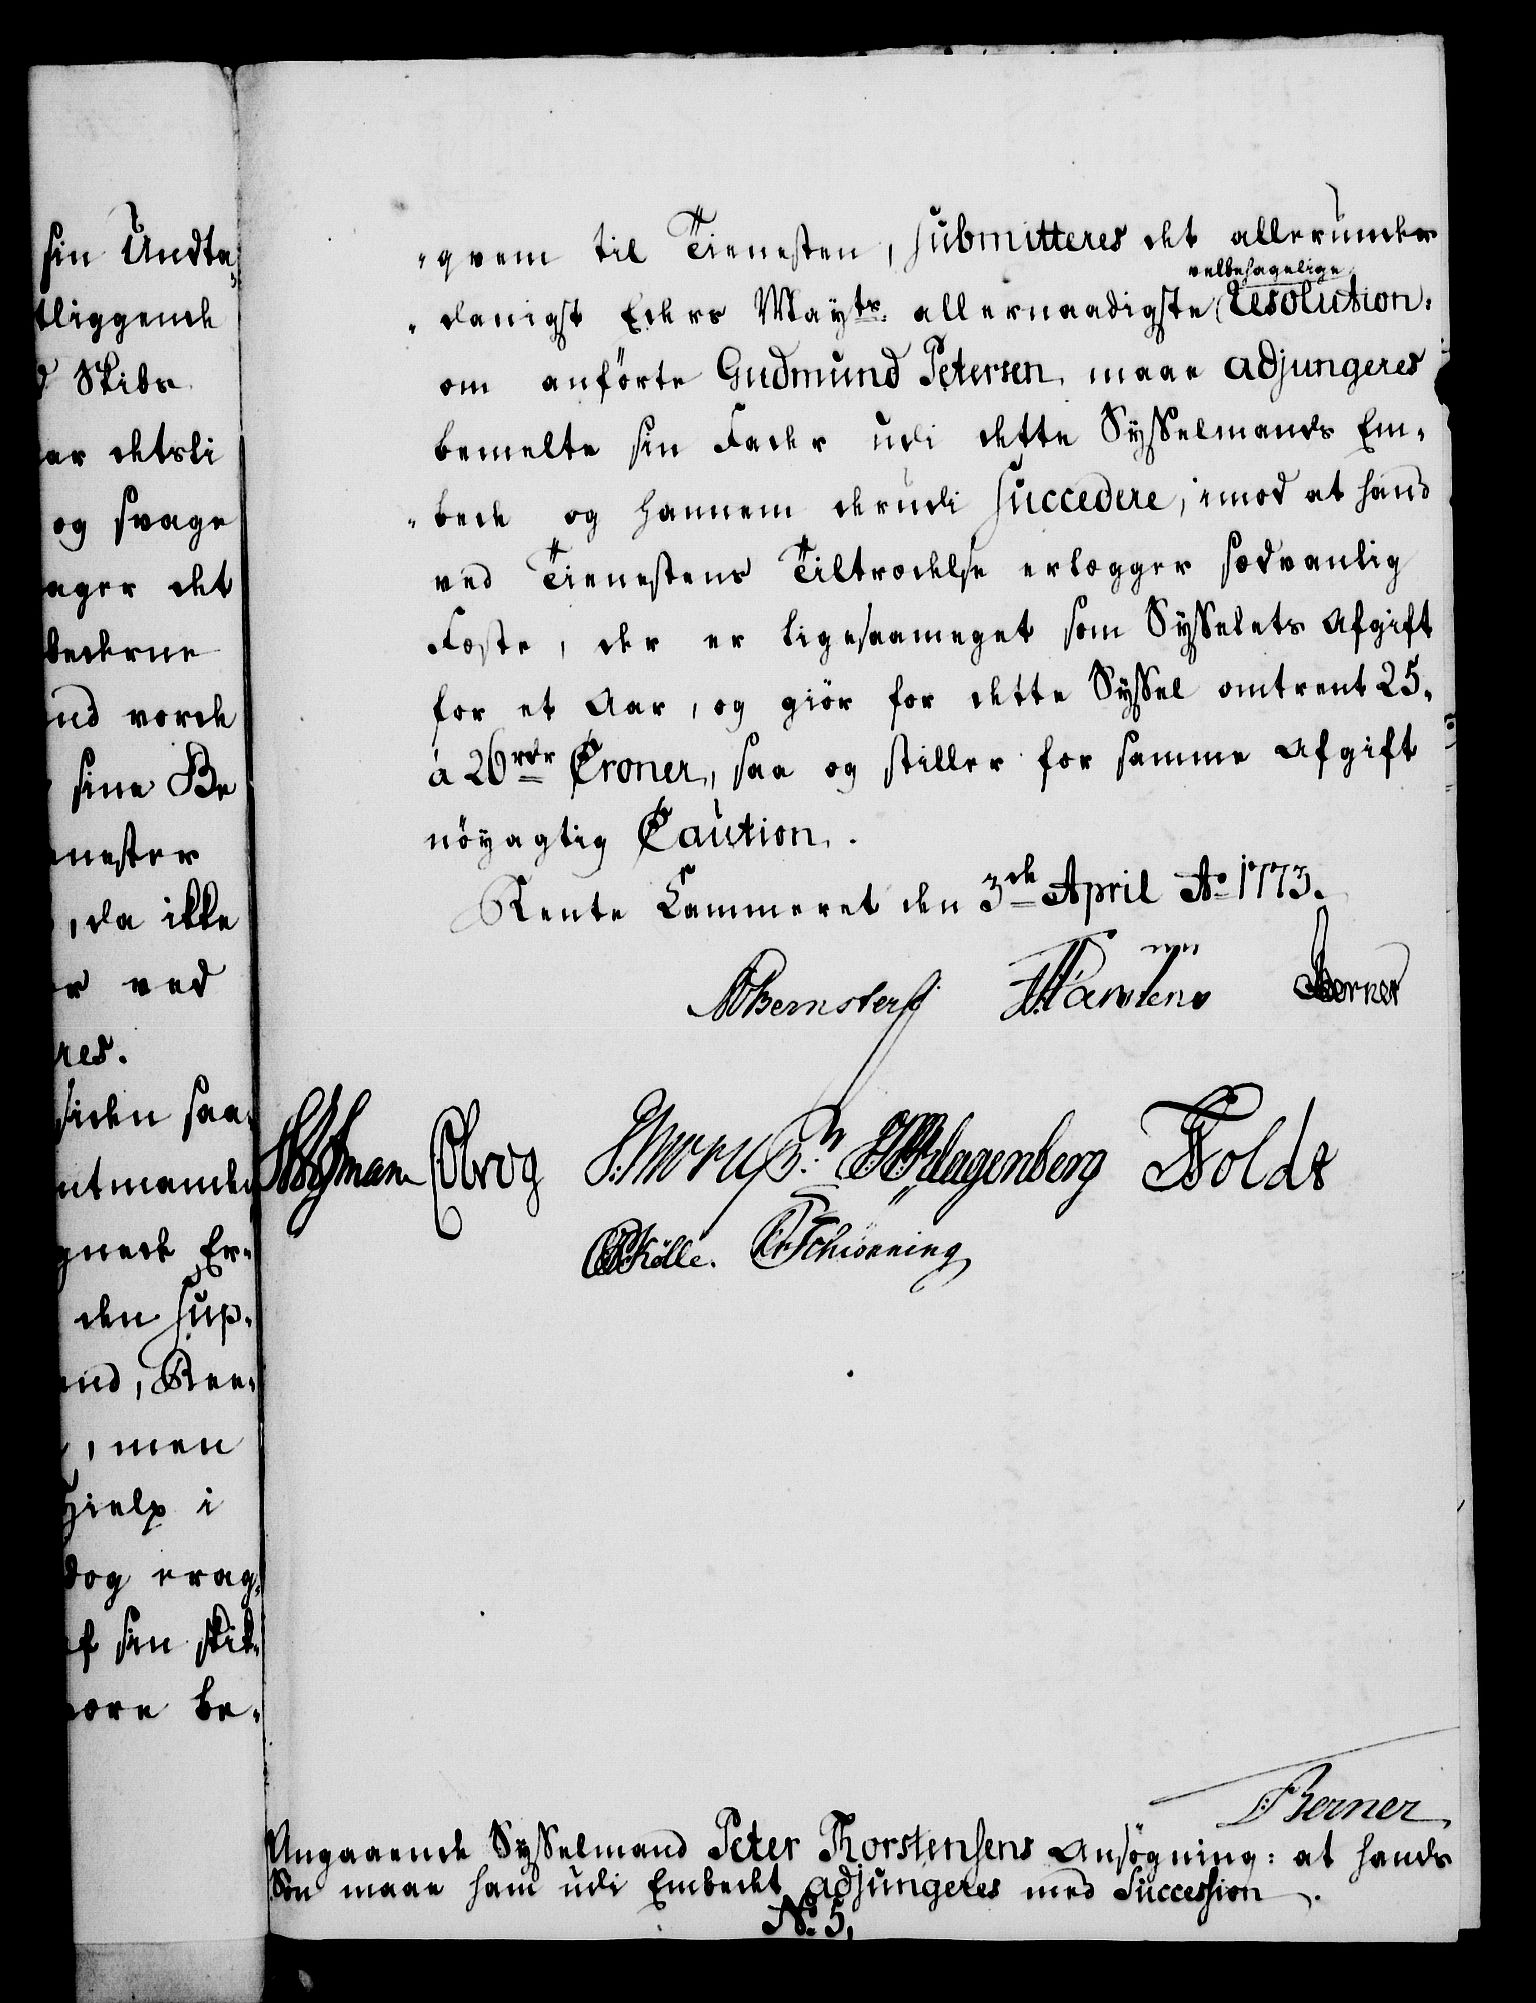 sin Undta
tliggende
d Skibe
ar detsli
og svage
ager det
bederne
nd vorde
sine Be
enester
, da ikke
r ved
res.
siden saa-
ntmande
gnede Er-
den Sup-
end, Ree-
, men
Hielp i
dog erag-
af sin skik-
være be-
qvem til Tienesten, submitteres det allerunder
danigst Eders Mayts. allernaadigste velbehagelige Resolution:
om anførte Gudmund Petersen, maae adjungeres
bemelte sin Fader udi dette Sysselmands Em-
bede og hannem derudi succedere, imod at hand
ved Tienestens Tiltrædelse erlægger sædvanlig
Fæste, der er ligesaameget som Sysselets Afgift
for et Aar, og giør for dette Syssel omtrent 25.
à 26 rdr Croner, saa og stiller for samme Afgift
nøyagtig Caution.
Rente Cammeret den 3de April Ao 1773.
Bernstorff Carstens Berner
Colbrog Klagenberg Holdt
Kølle. Schiønning
Berner
Angaaende Sysselmand Peter Thorstensens Ansøgning: at hands
Søn maae ham udi Embedet adjungeres med Succession.
No. 5.